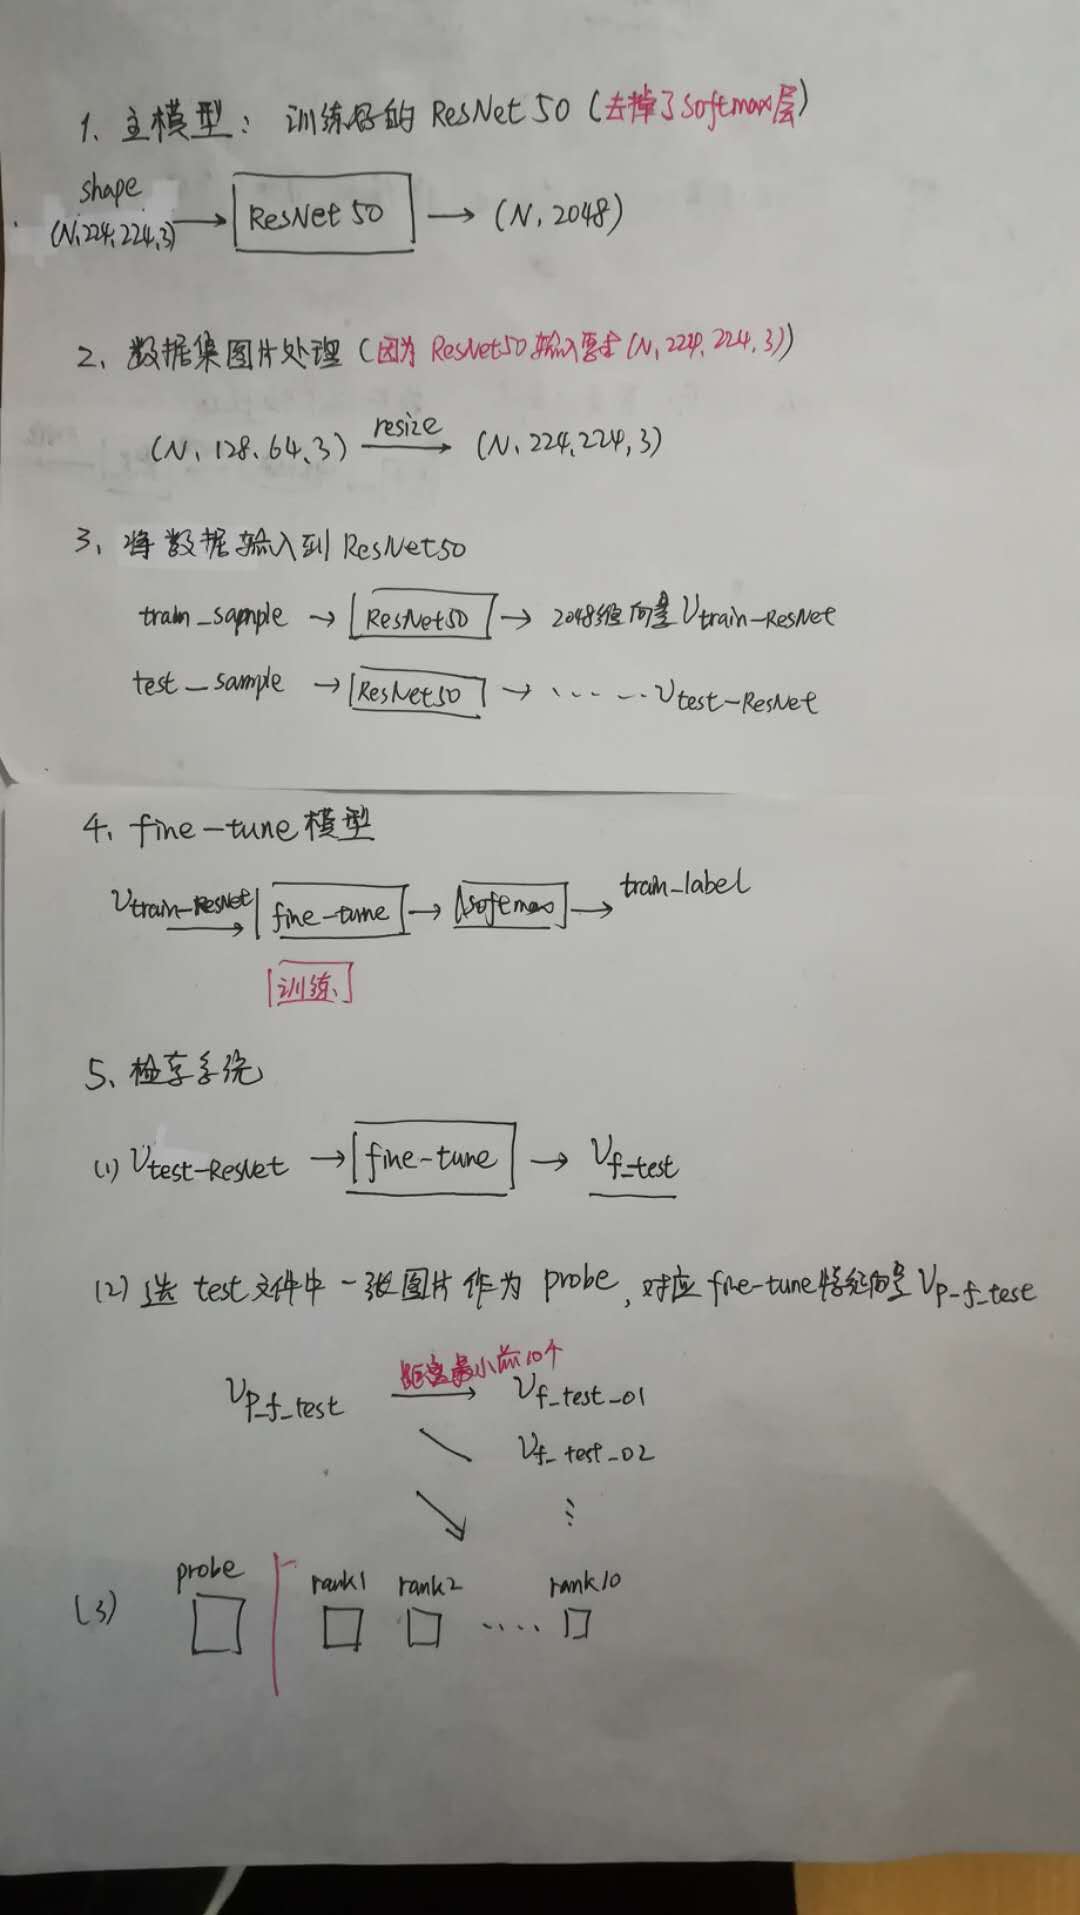 1、主模型：训练好的 ResNet 50（去掉了softmax层）
shape
(N,224,224,3) → ResNet 50 → (N, 2048)
2、数据集图片处理（因为 ResNet50 输入要求 (N, 224, 224, 3)）
(N, 128, 64, 3) resize → (N, 224, 224, 3)
3、将数据输入到 ResNet50
train_sapnple → ResNet50 → 2048维向量 Vtrain-ResNet
test_sample → ResNet50 → ...... Vtest-ResNet
4、fine-tune 模型
Vtrain-ResNet → fine-tune → softmax → train_label
训练
5、检索系统
(1) Vtest-ResNet → fine-tune → Vf_test
(2) 选 test 文件中一张图片作为 probe, 对应 fine-tune特征向量 Vp_f_test
距离最小前10个
Vp_f_test → Vf_test_01
Vf_test_02
⋮
(3) probe rank1 rank2 .... rank10